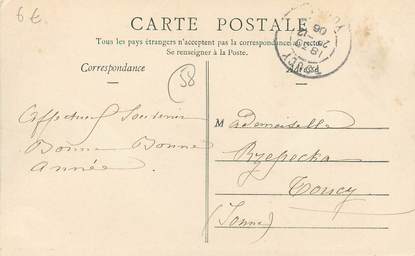 6 €
CARTE POSTALE
Tous les pays étrangers n'acceptent pas la correspondance au recto
Se renseigner à la Poste.
Correspondance
Adresse
58
Affectueux Souvenir
Bonne Bonne
Année
Mademoiselle
Toucy
(Yonne)